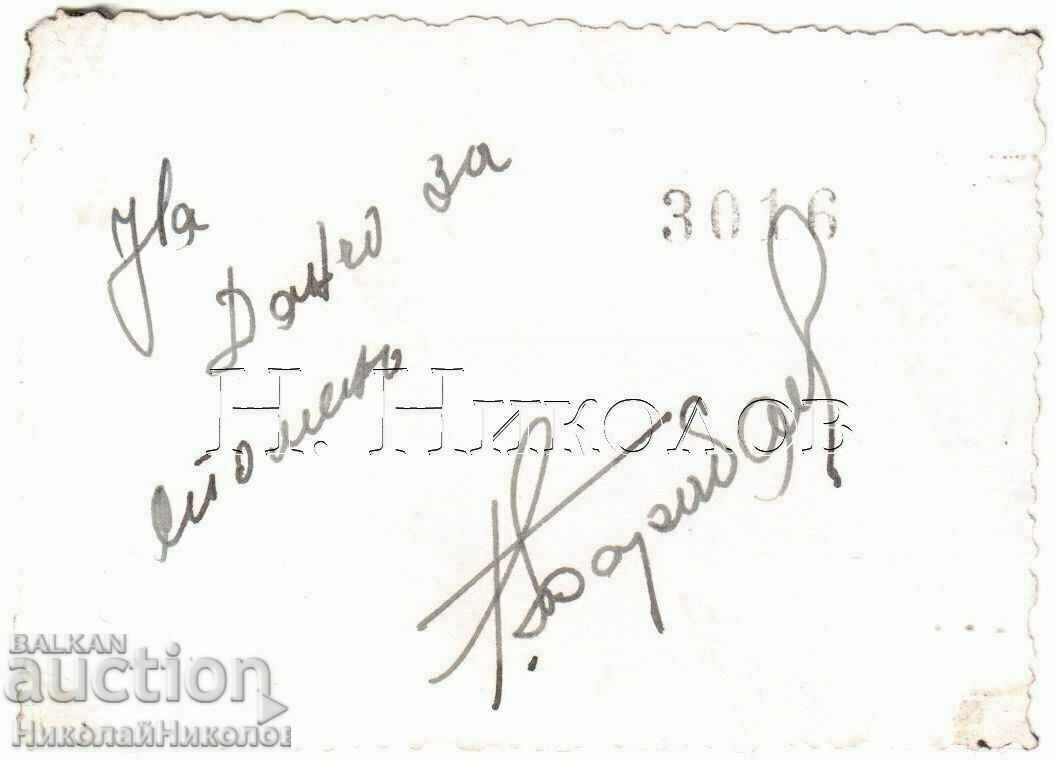 На
Данчо за
спомен
3016
Н. Николов
BALKAN
auction
НиколайНиколов